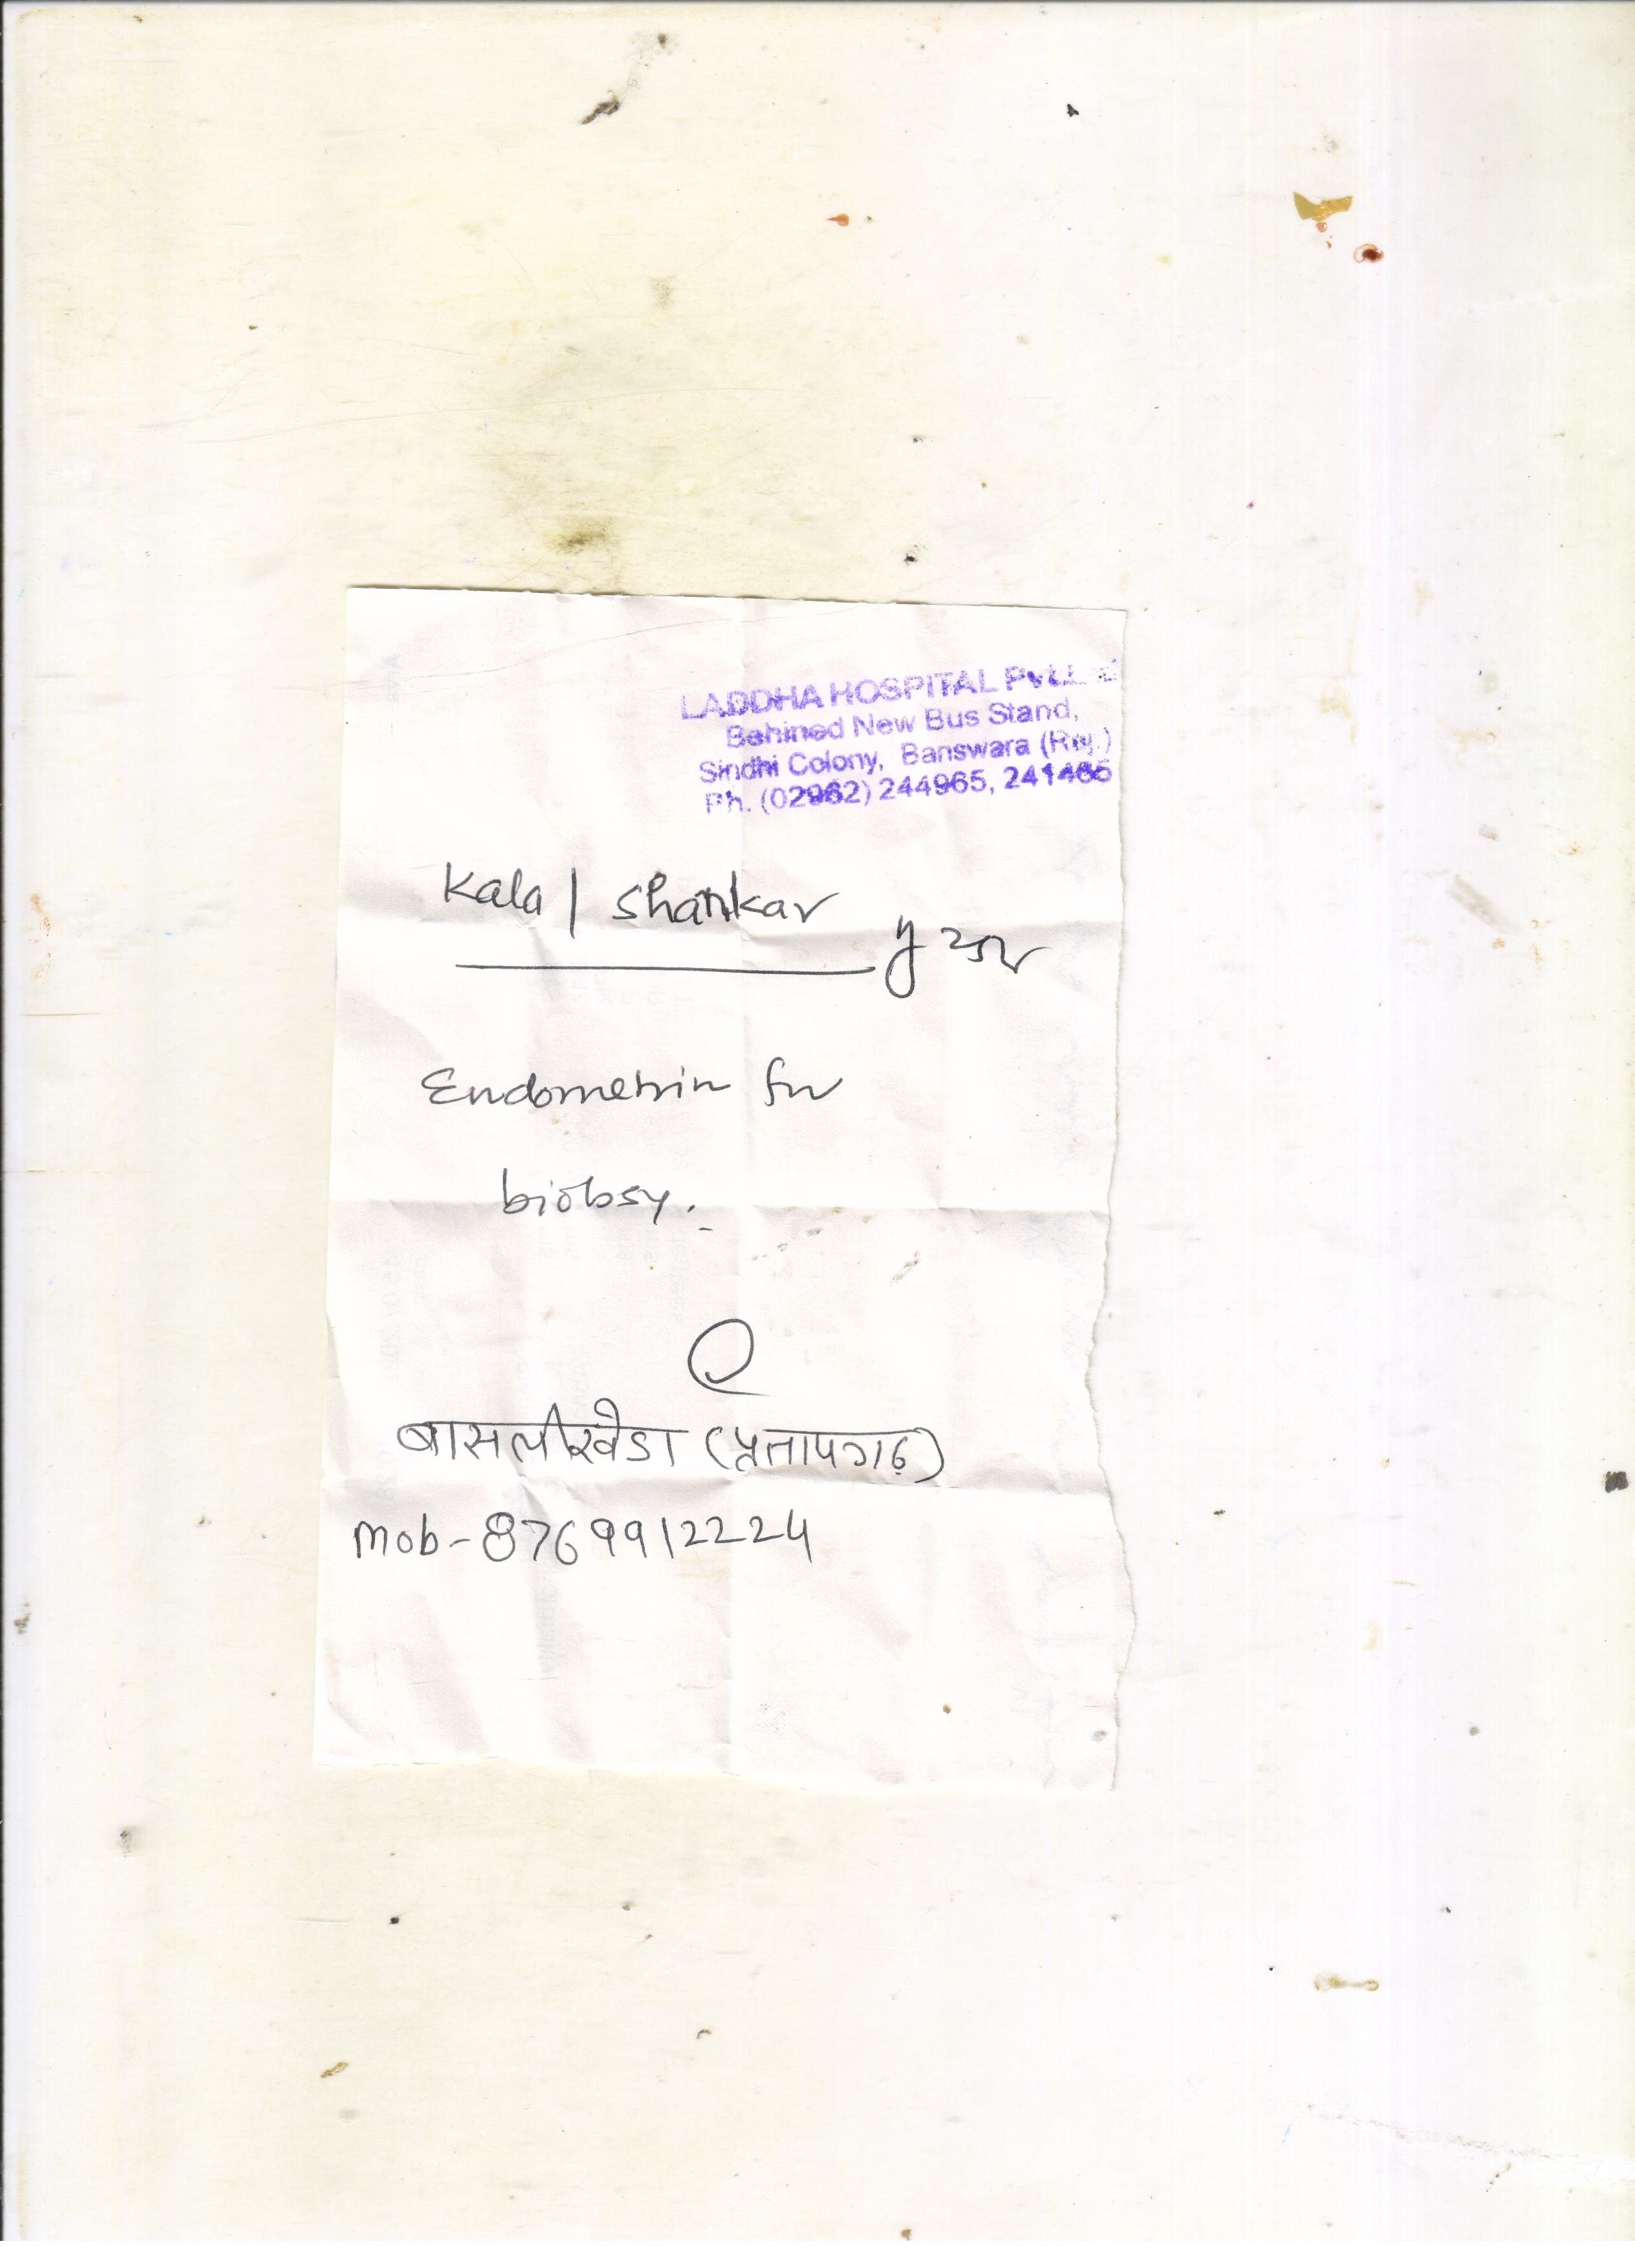 LADDHA HOSPITAL Pvt.
Behined New Bus Stand,
Sindhi Colony, Banswara (Raj.)
Ph. (02962) 244965, 241465
Kala / Shankar
Endometrin for
biobsy.
बासलीखेडा (प्रतापगढ़)
Mob-8769912224